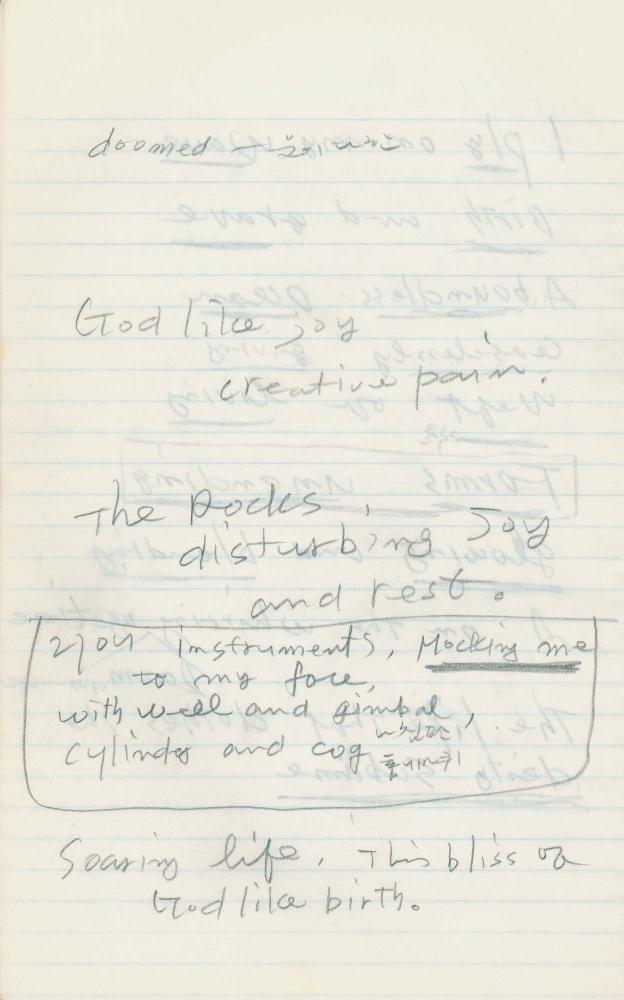 doomed —
God like joy
creative pain.
The Rocks,
disturbing Joy
and rest.
instruments, Mocking me
to my face,
with weel and gimbal, 나침판
cylinder and cog 톱니바퀴
Soaring life, This bliss of
God like birth.